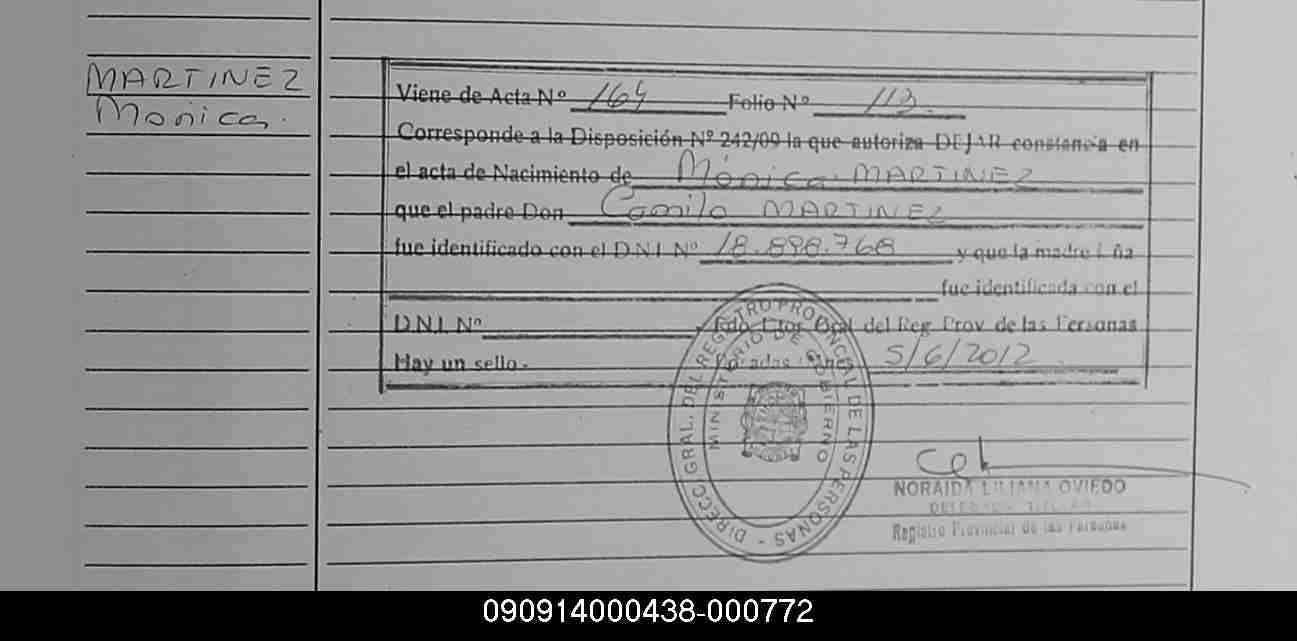 MARTINEZ
Monica.
Viene de Acta Nº 164 Folio Nº 113.
Corresponde a la Disposición Nº 242/09 la que autoriza DEJAR constancia en
el acta de Nacimiento de Mónica MARTINEZ
que el padre Don Camilo MARTINEZ
fue identificado con el D.N.I. Nº 18.898.768 y que la madre Dña
fue identificada con el
D.N.I. Nº Fdo. Dtor. Gral del Reg. Prov de las Personas
Hay un sello. Posadas Mnes 5/6/2012
DIRECC. GRAL. DEL REGISTRO PROVINCIAL DE LAS PERSONAS -
MINISTERIO DE GOBIERNO
NORAIDA LILIANA OVIEDO
DELEGADA TITULAR
Registro Provincial de las Personas
090914000438-000772